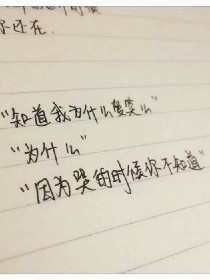 你还在.
“知道我为什么爱笑么”
“为什么”
“因为哭的时候你不知道”